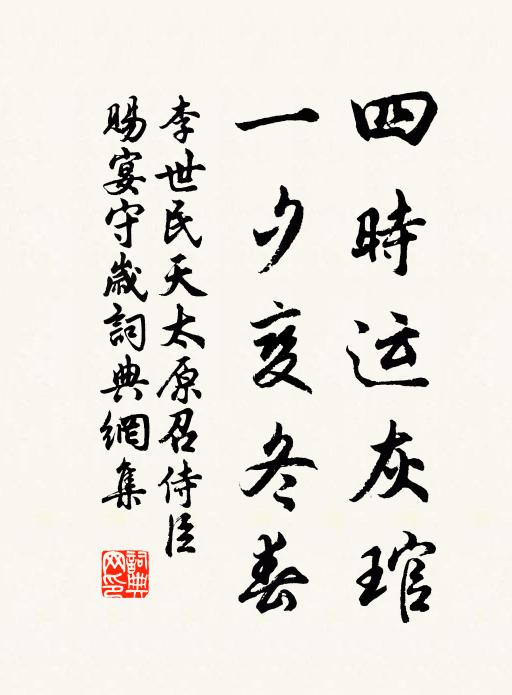 四時运灰琯
一夕变冬春
李世民天太原召侍臣
賜宴守歲詞典網集
詞典网印